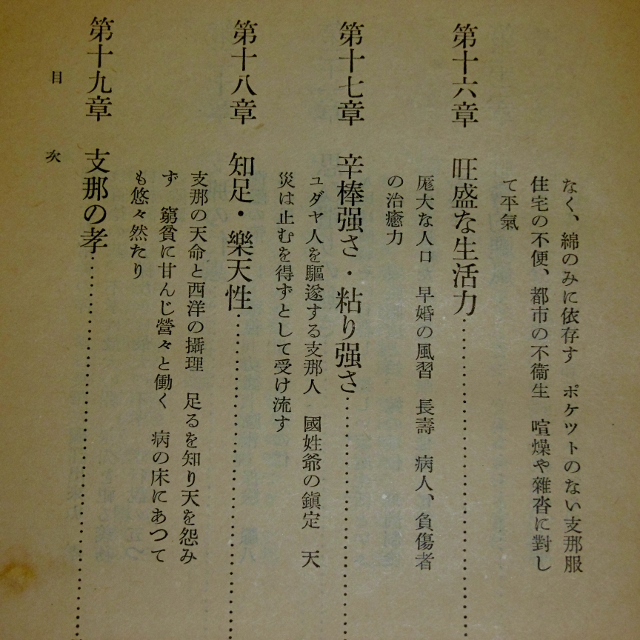 なく、綿のみに依存す　ポケツトのない支那服
住宅の不便、都市の不衞生　喧燥や雜沓に對し
て平氣
第十六章　旺盛な生活力
厖大な人口　早婚の風習　長壽　病人、負傷者
の治癒力
第十七章　辛棒强さ・粘り强さ
ユダヤ人を驅逐する支那人　國姓爺の鎭定　天
災は止むを得ずとして受け流す
第十八章　知足・樂天性
支那の天命と西洋の攝理　足るを知り天を怨み
ず　窮貧に甘んじ營々と働く　病の床にあつて
も悠々然たり
第十九章　支那の孝
目次